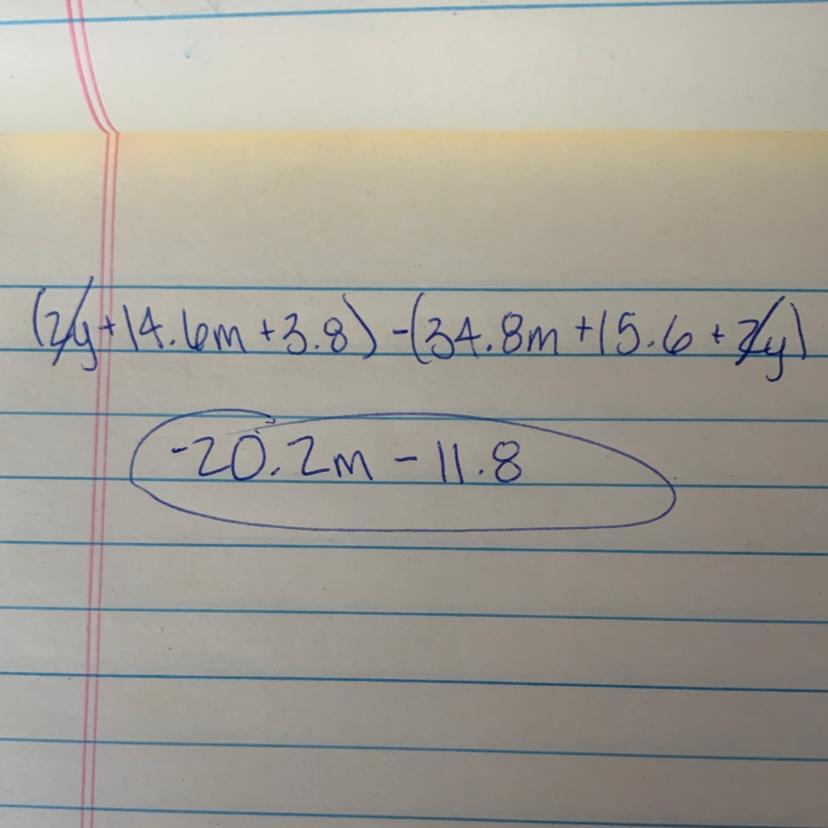 (2y+14.6m+3.8)-(34.8m+15.6+2y)
-20.2m-11.8